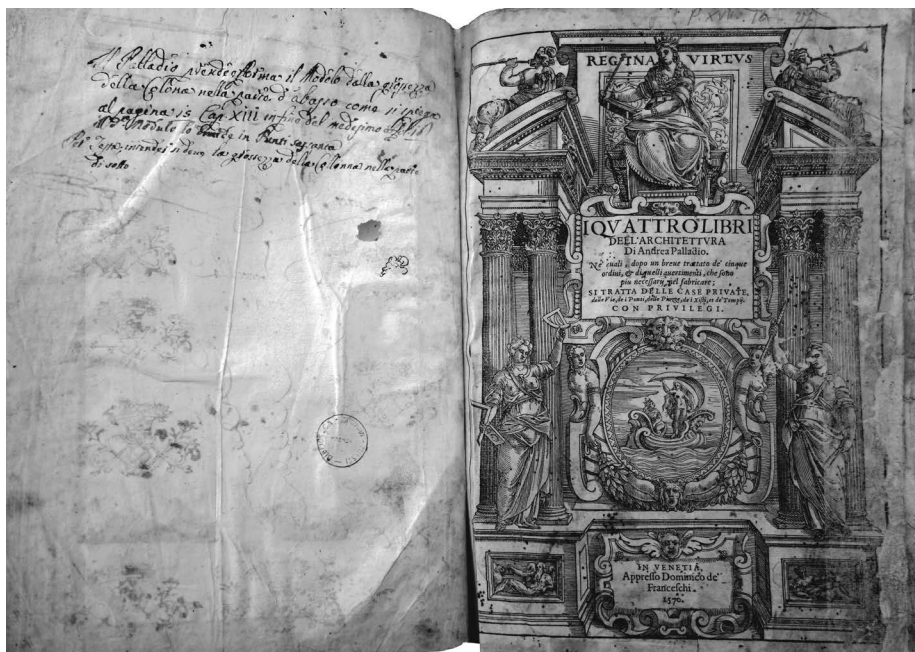 Il Palladio prende forma il Modolo dalla grossezza
della Colona nella parte d'abasso come si
al pagina 15 Cap XIII in fine del medesimo
Il Modulo lo in Punti sessanta
intendersi deve la grossezza della Colonna nella parte
di sotto
REGINA VIRTVS
I QVATTRO LIBRI
DELL'ARCHITETTVRA
Di Andrea Palladio.
Ne' quali, dopo un breue trattato de' cinque
ordini, & di quelli auertimenti, che sono
piu necessarij nel fabricare;
SI TRATTA DELLE CASE PRIVATE,
delle Vie, de i Ponti, delle Piazze, de i Xisti, et de' Tempij.
CON PRIVILEGI.
IN VENETIA,
Appresso Dominico de'
Franceschi.
1570.